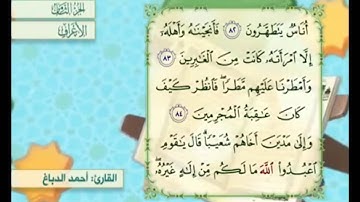 الجزء الثامن
الأعراف
أُنَاسٌ يَتَطَهَّرُونَ ٨٢ فَأَنجَيْنَٰهُ وَأَهْلَهُۥٓ
إِلَّا ٱمْرَأَتَهُۥ كَانَتْ مِنَ ٱلْغَٰبِرِينَ ٨٣
وَأَمْطَرْنَا عَلَيْهِم مَّطَرًا ۖ فَٱنظُرْ كَيْفَ
كَانَ عَٰقِبَةُ ٱلْمُجْرِمِينَ ٨٤
وَإِلَىٰ مَدْيَنَ أَخَاهُمْ شُعَيْبًا ۗ قَالَ يَٰقَوْمِ
ٱعْبُدُوا۟ ٱللَّهَ مَا لَكُم مِّنْ إِلَٰهٍ غَيْرُهُۥ ۖ
القارئ: أحمد الدباغ